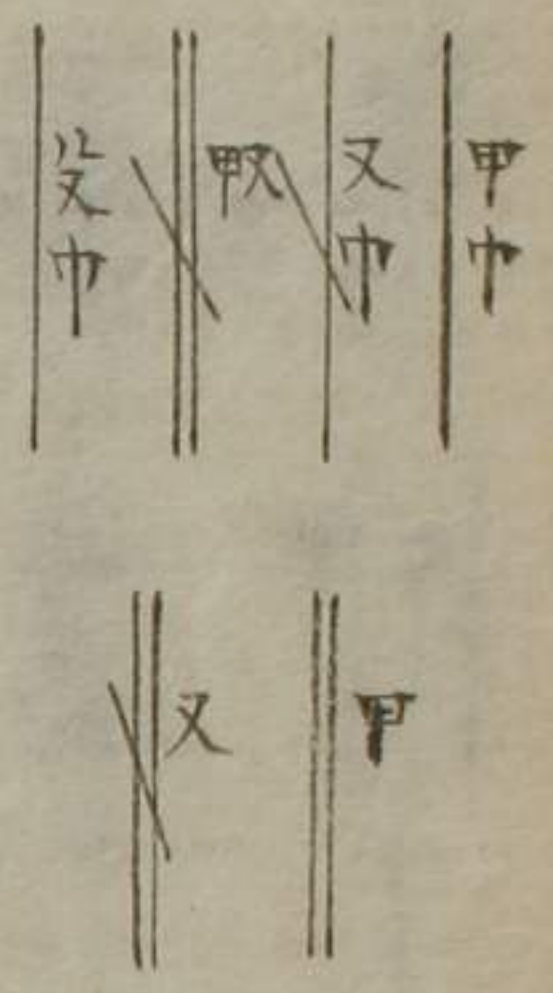 甲巾
又巾
甲又
巾
甲
又